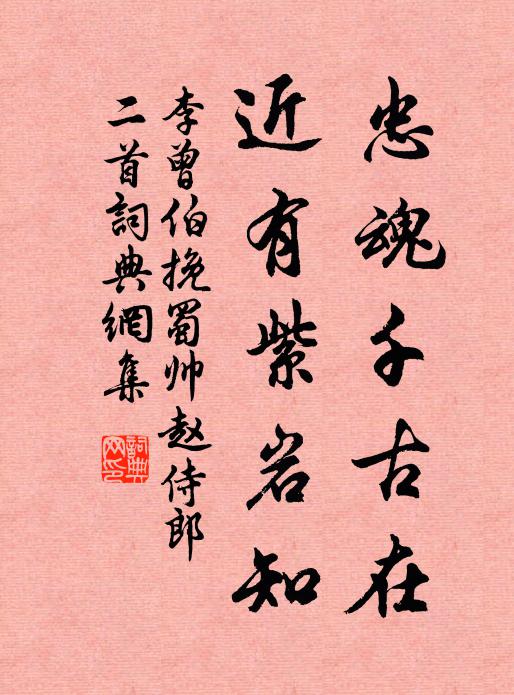 忠魂千古在
近有紫岩知
李曾伯挽蜀帅赵侍郎
二首詞典網集
詞典
网印